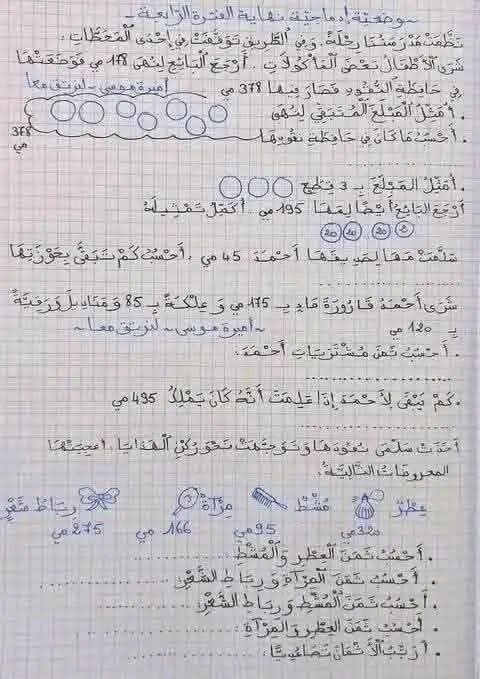 وضعيّة إدماجيّة نهاية الفترة الرّابعة
نَظَّمَتْ مَدْرَسَتُنَا رِحْلَةً. وَفِي الطَّرِيقِ تَوَقَّفَتْ فِي إِحْدَى الْمَحَطَّاتِ.
شَرَى الْأَطْفَالُ بَعْضَ الْمَأْكُولَاتِ. أَرْجَعَ الْبَائِعُ لِنُهَى 178 مي فَوَضَعَتْهَا
فِي حَافِظَةِ النُّقُودِ فَصَارَ فِيهَا 378 مي
أميرة موسى - لنرتق معا
. أُمَثِّلُ الْمَبْلَغَ الْمُتَبَقِّي لِنُهَى
. أَحْسُبُ مَا كَانَ فِي حَافِظَةِ نُقُودِهَا
378
مي
..................
. أُمَثِّلُ الْمَبْلَغَ بِـ 3 قِطَعٍ
أَرْجَعَ الْبَائِعُ أَيْضًا لِمَهَا 195 مي أُكْمِلُ تَمْثِيلَهُ
20 20 20 2
سَلَّمَتْ مَهَا لِصَدِيقِهَا أَحْمَدَ 45 مي. أَحْسُبُ كَمْ تَبَقَّى بِحَوْزَتِهَا
..................
شَرَى أَحْمَدُ قَارُورَةَ مَاءٍ بِـ 175 مي وَ عِلْكَةً بِـ 85 وَ مَنَادِيلَ وَرَقِيَّةً
بِـ 120 مي
- أميرة موسى - لنرتق معا -
. أَحْسُبُ ثَمَنَ مُشْتَرَيَاتِ أَحْمَدَ.
..................
. كَمْ بَقِيَ لِأَحْمَدَ إِذَا عَلِمْتَ أَنَّهُ كَانَ يَمْلِكُ 495 مي
..................
أَخَذَتْ سَلْمَى نُقُودَهَا وَ تَوَجَّهَتْ نَحْوَ رُكْنِ الْهَدَايَا. أَعْجَبَتْهَا
الْمَعْرُوضَاتُ التَّالِيَةُ.
عِطْرٌ مُشْطٌ مِرْآةٌ رِبَاطُ شَعْرٍ
320 مي 95 مي 166 مي 275 مي
. أَحْسُبُ ثَمَنَ الْعِطْرِ وَالْمُشْطِ ..................
. أَحْسُبُ ثَمَنَ الْمِرْآةِ وَ رِبَاطِ الشَّعْرِ ..................
. أَحْسُبُ ثَمَنَ الْمُشْطِ وَ رِبَاطِ الشَّعْرِ ..................
. أَحْسُبُ ثَمَنَ الْعِطْرِ وَالْمِرْآةِ ..................
. أُرَتِّبُ الْأَثْمَانَ تَصَاعُدِيًّا ..................